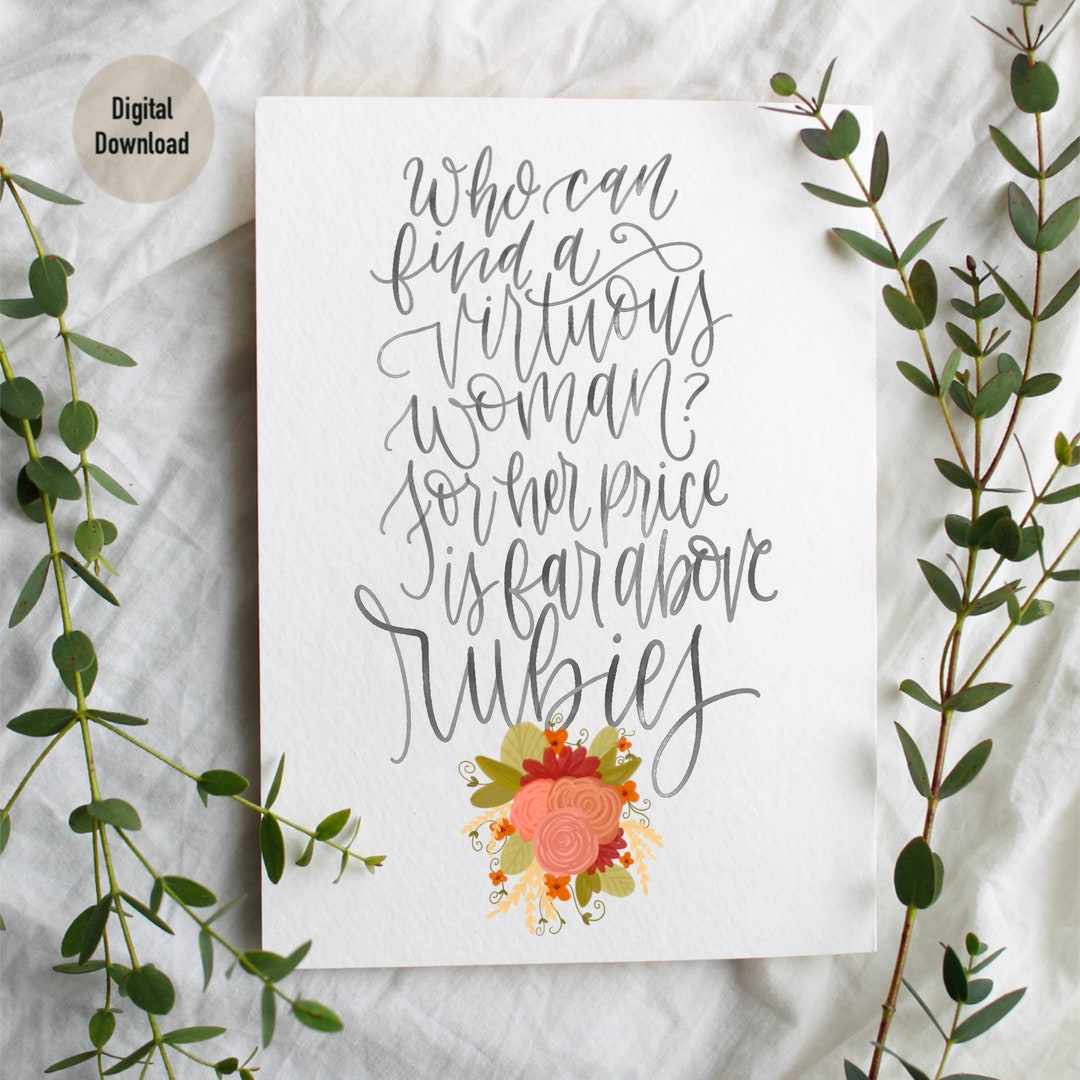 Digital
Download
Who can
find a
virtuous
woman?
For her price
is far above
Rubies